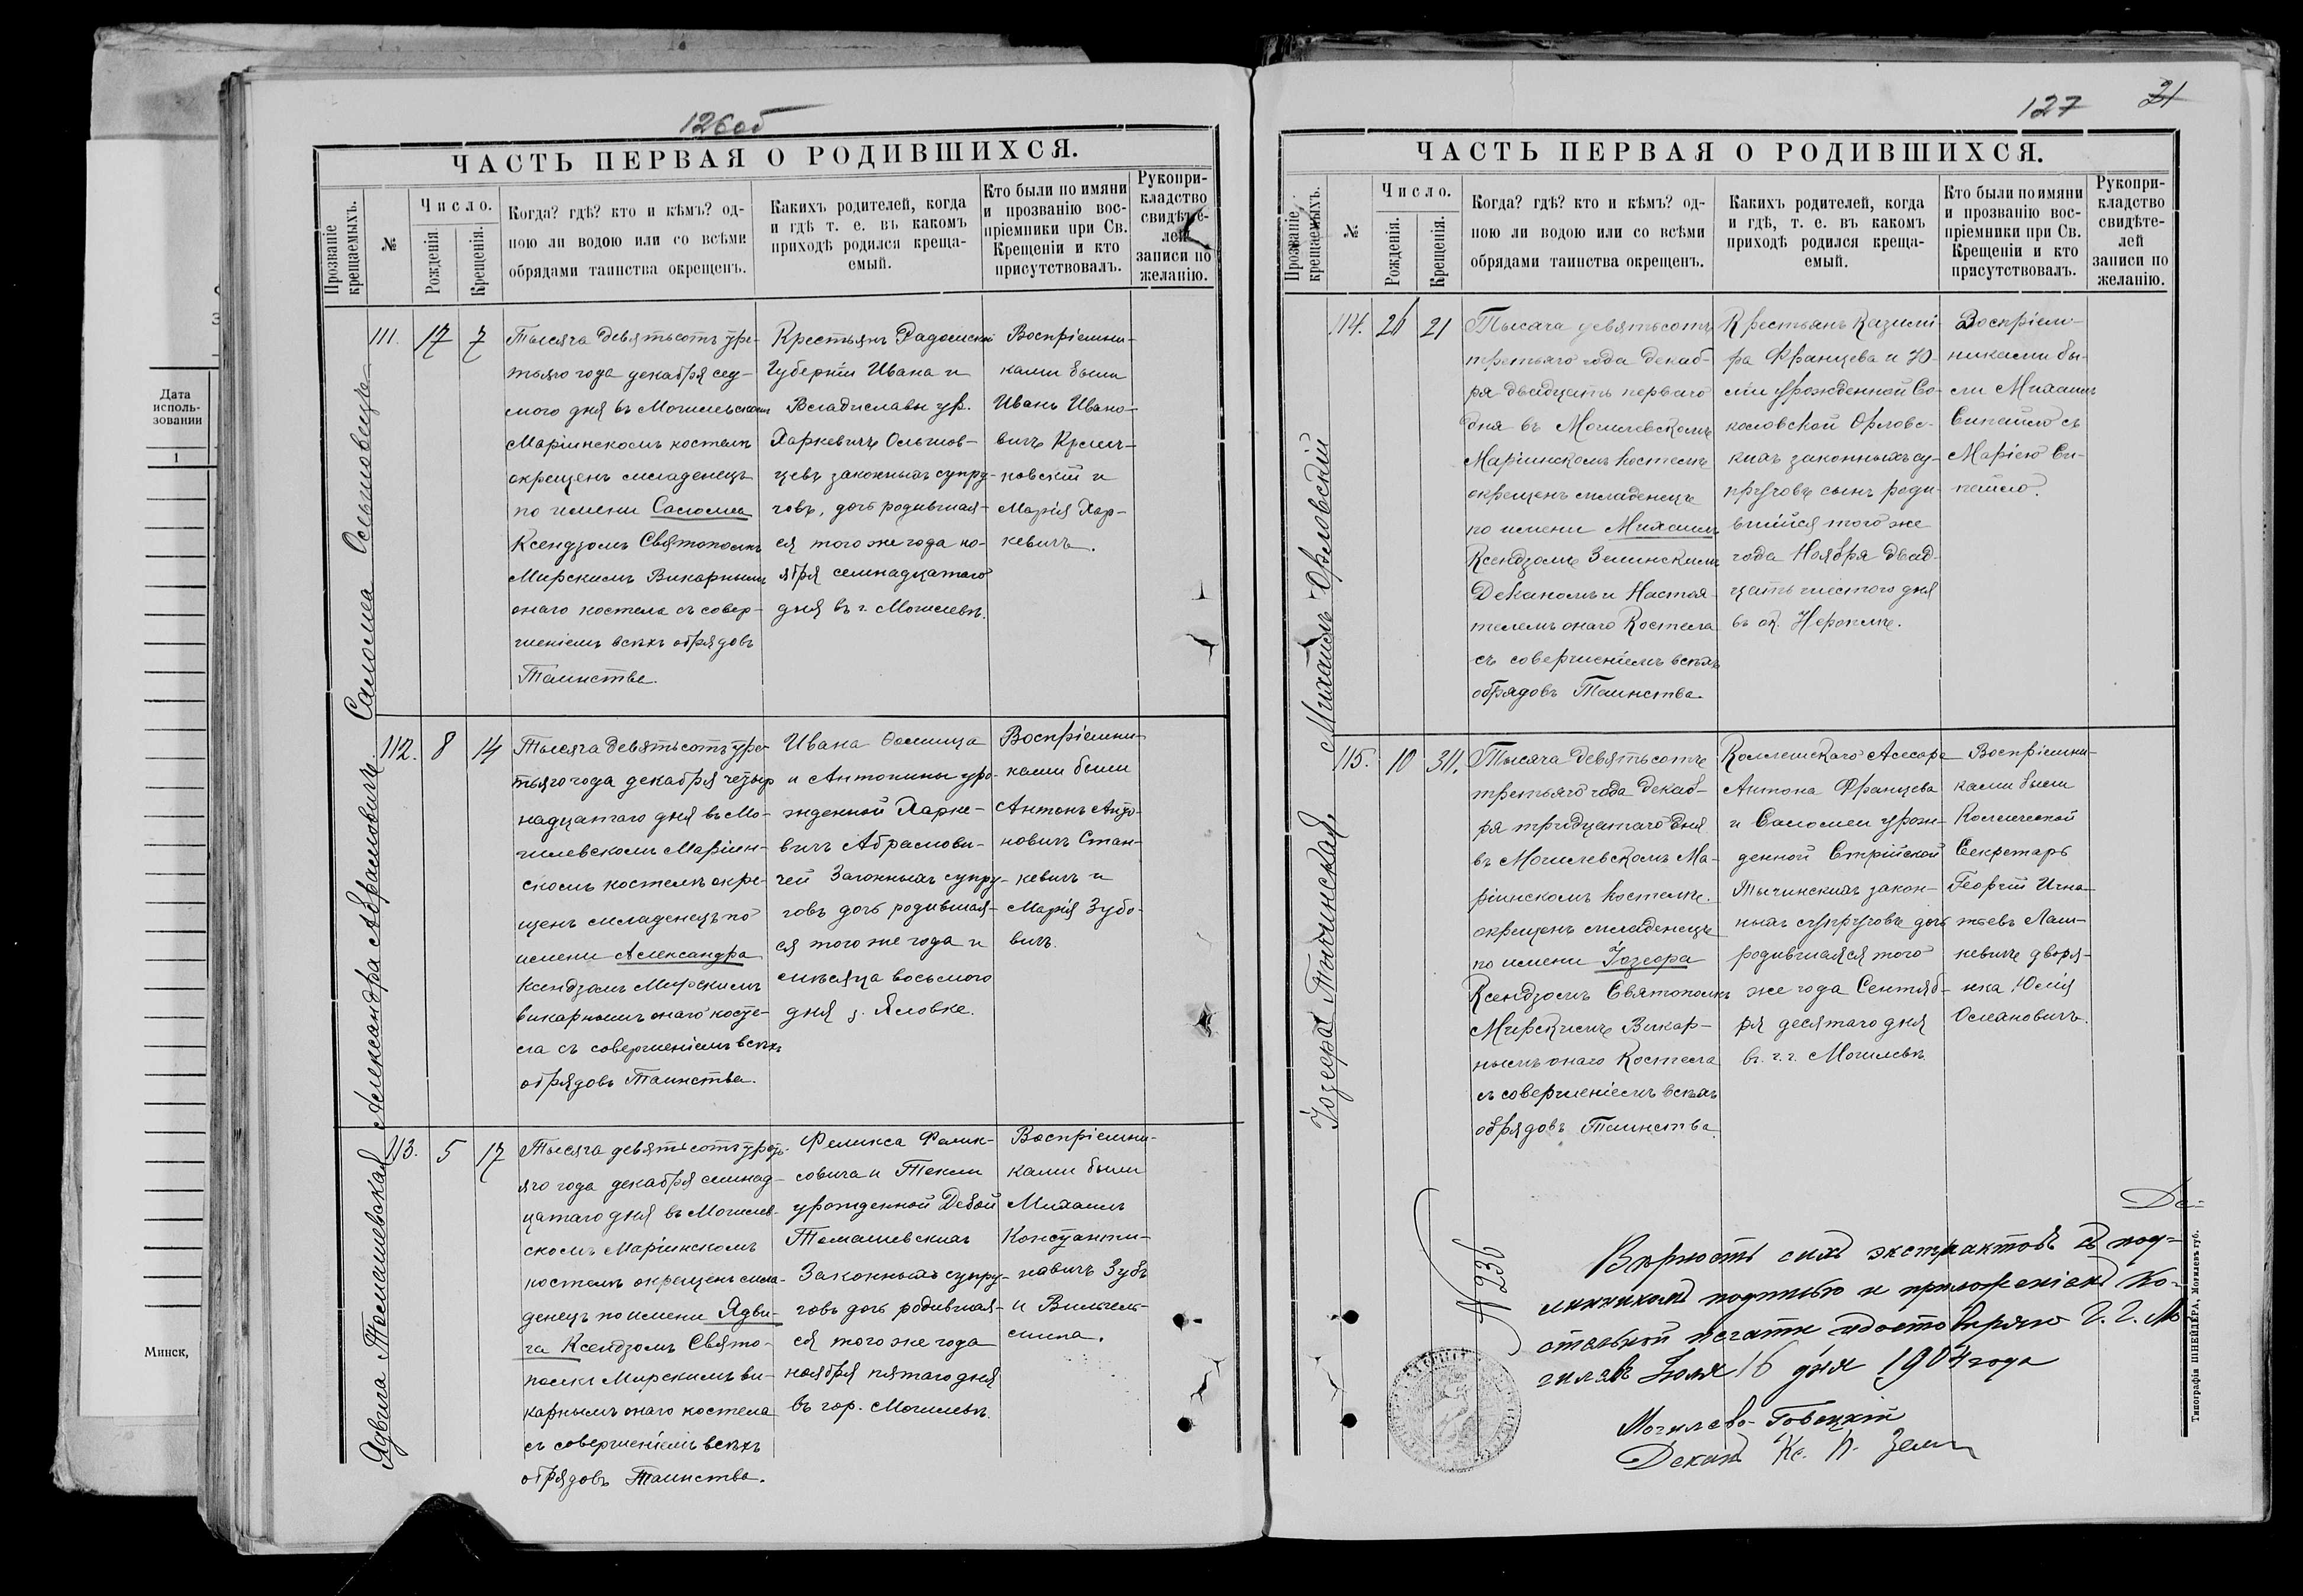 126об
ЧАСТЬ ПЕРВАЯ О РОДИВШИХСЯ.
Прозваніе крещаемыхъ.
№
Число.
Рожденія
Крещенія.
Когда? гдѣ? кто и кѣмъ? од-
ною ли водою или со всѣми
обрядами таинства окрещенъ.
Какихъ родителей, когда
и гдѣ т. е. въ какомъ
приходѣ родился креща-
емый.
Кто были по имяни
и прозванію вос-
пріемники при Св.
Крещеніи и кто
присутствовалъ.
Рукопри-
кладство
свидѣте-
лей
записи по
желанію.
Саломея Ольшовецъ
111.
17
7
Тысяча девятьсотъ тре-
тьяго года декабря сед-
мого дня въ Могилевскомъ
Маріинскомъ костелѣ
окрещенъ младенецъ
по имени Саломея
Ксендзомъ Святополкъ
Мирскимъ Викарнымъ
онаго костела съ совер-
шеніемъ всѣхъ обрядовъ
Таинства.
Крестьянъ Радомской
Губерніи Ивана и
Владиславы ур.
Харкевичъ Ольшов-
цевъ законныхъ супру-
говъ, дочь родившая-
ся того же года но-
ября семнадцатаго
дня въ г. Могилевѣ.
Воспріемни-
ками были
Иванъ Ивано-
вичъ
новскій и
Марія Хар-
кевичъ.
Александра Абрамовичъ
112.
8
14
Тысяча девятьсотъ тре-
тьяго года декабря четыр
надцатаго дня въ Мо-
гилевскомъ Маріин-
скомъ костелѣ окре-
щенъ младенецъ по
имени Александра
Ксендзомъ Мирскимъ
викарнымъ онаго косте-
ла съ совершеніемъ всѣхъ
обрядовъ Таинства.
Ивана Фомича
и Антонины уро-
жденной Харке-
вичъ Абрамови-
чей Законныхъ супру-
говъ дочь родившая-
ся того же года и
мѣсяца восьмого
дня з. Яловке.
Воспріемни-
ками были
Антонъ Анто-
новичъ Стан-
кевичъ и
Марія Зубо-
вичъ.
Ядвига Томашевская
113.
5
17
Тысяча девятьсотъ треть-
яго года декабря семнад-
цатаго дня въ Могилев-
скомъ Маріинскомъ
костелѣ окрещенъ мла-
денецъ по имени Ядви-
га Ксендзомъ Свято-
полкъ Мирскимъ ви-
карнымъ онаго костела
съ совершеніемъ всѣхъ
обрядовъ Таинства.
Феликса Фелик-
совича и Текли
урожденной Дебой
Томашевскихъ
Законныхъ супру-
говъ дочь родившая-
ся того же года
ноября пятаго дня
въ гор. Могилевѣ.
Воспріемни-
ками были
Михаилъ
Константи-
новичъ Зубъ
и Вильгель-
мина.
127
21
ЧАСТЬ ПЕРВАЯ О РОДИВШИХСЯ.
Прозваніе крещаемыхъ.
№
Число.
Рожденія.
Крещенія.
Когда? гдѣ? кто и кѣмъ? од-
ною ли водою или со всѣми
обрядами таинства окрещенъ.
Какихъ родителей, когда
и гдѣ, т. е. въ какомъ
приходѣ родился креща-
емый.
Кто были по имяни
и прозванію вос-
пріемники при Св.
Крещеніи и кто
присутствовалъ.
Рукопри-
кладство
свидѣте-
лей
записи по
желанію.
Михаилъ Орловскій
114.
26
21
Тысяча девятьсотъ
третьяго года Декаб-
ря двадцать перваго
дня въ Могилевскомъ
Маріинскомъ Костелѣ
окрещенъ младенецъ
по имени Михаилъ
Ксендзомъ Зелинскимъ
Деканомъ и Настоя-
телемъ онаго Костела
съ совершеніемъ всѣхъ
обрядовъ Таинства.
Крестьянъ Казими-
ра Францева и Ю-
ліи урожденной Со-
коловской Орловс-
кихъ законныхъ су-
пруговъ сынъ роди-
вшійся того же
года Ноября двад-
цать шестого дня
въ ок.
Воспріем-
никами бы-
ли Михаилъ
съ
Маріею
Іозефа Тычинская
115.
10
30.
Тысяча девятьсотъ
третьяго года Декаб-
ря тридцатаго дня
въ Могилевскомъ Ма-
ріинскомъ Костелѣ.
окрещенъ младенецъ
по имени Іозефа
Ксендзомъ Святополкъ
Мирскимъ Викар-
нымъ онаго Костела
съ совершеніемъ всѣхъ
обрядовъ Таинства.
Коллежскаго Асесора
Антона Францева
и Саломеи урож-
денной Стрійской
Тычинскихъ закон-
ныхъ супруговъ дочь
родившаяся того
же года Сентяб-
ря десятаго дня
въ г. г. Могилевѣ
Воспріемни-
ками были
Коллежской
Секретарь
Георгій Игна-
тьевъ Лаш-
кевичъ дворя-
нка Юлія
Османовичъ.
№ 236
Де-
Вѣрность сихъ экстрактовъ съ под-
линникомъ подписью и приложеніемъ Ко-
стельной печати удостовѣряю Г. Г. Мо
гилевъ Іюля 16 дня 1904 года
Могилево-
Деканъ Кс. П.
Типографія ШНЕЙДЕРА, Могилевъ губ.
Дата
исполь-
зовании
1
Минск,